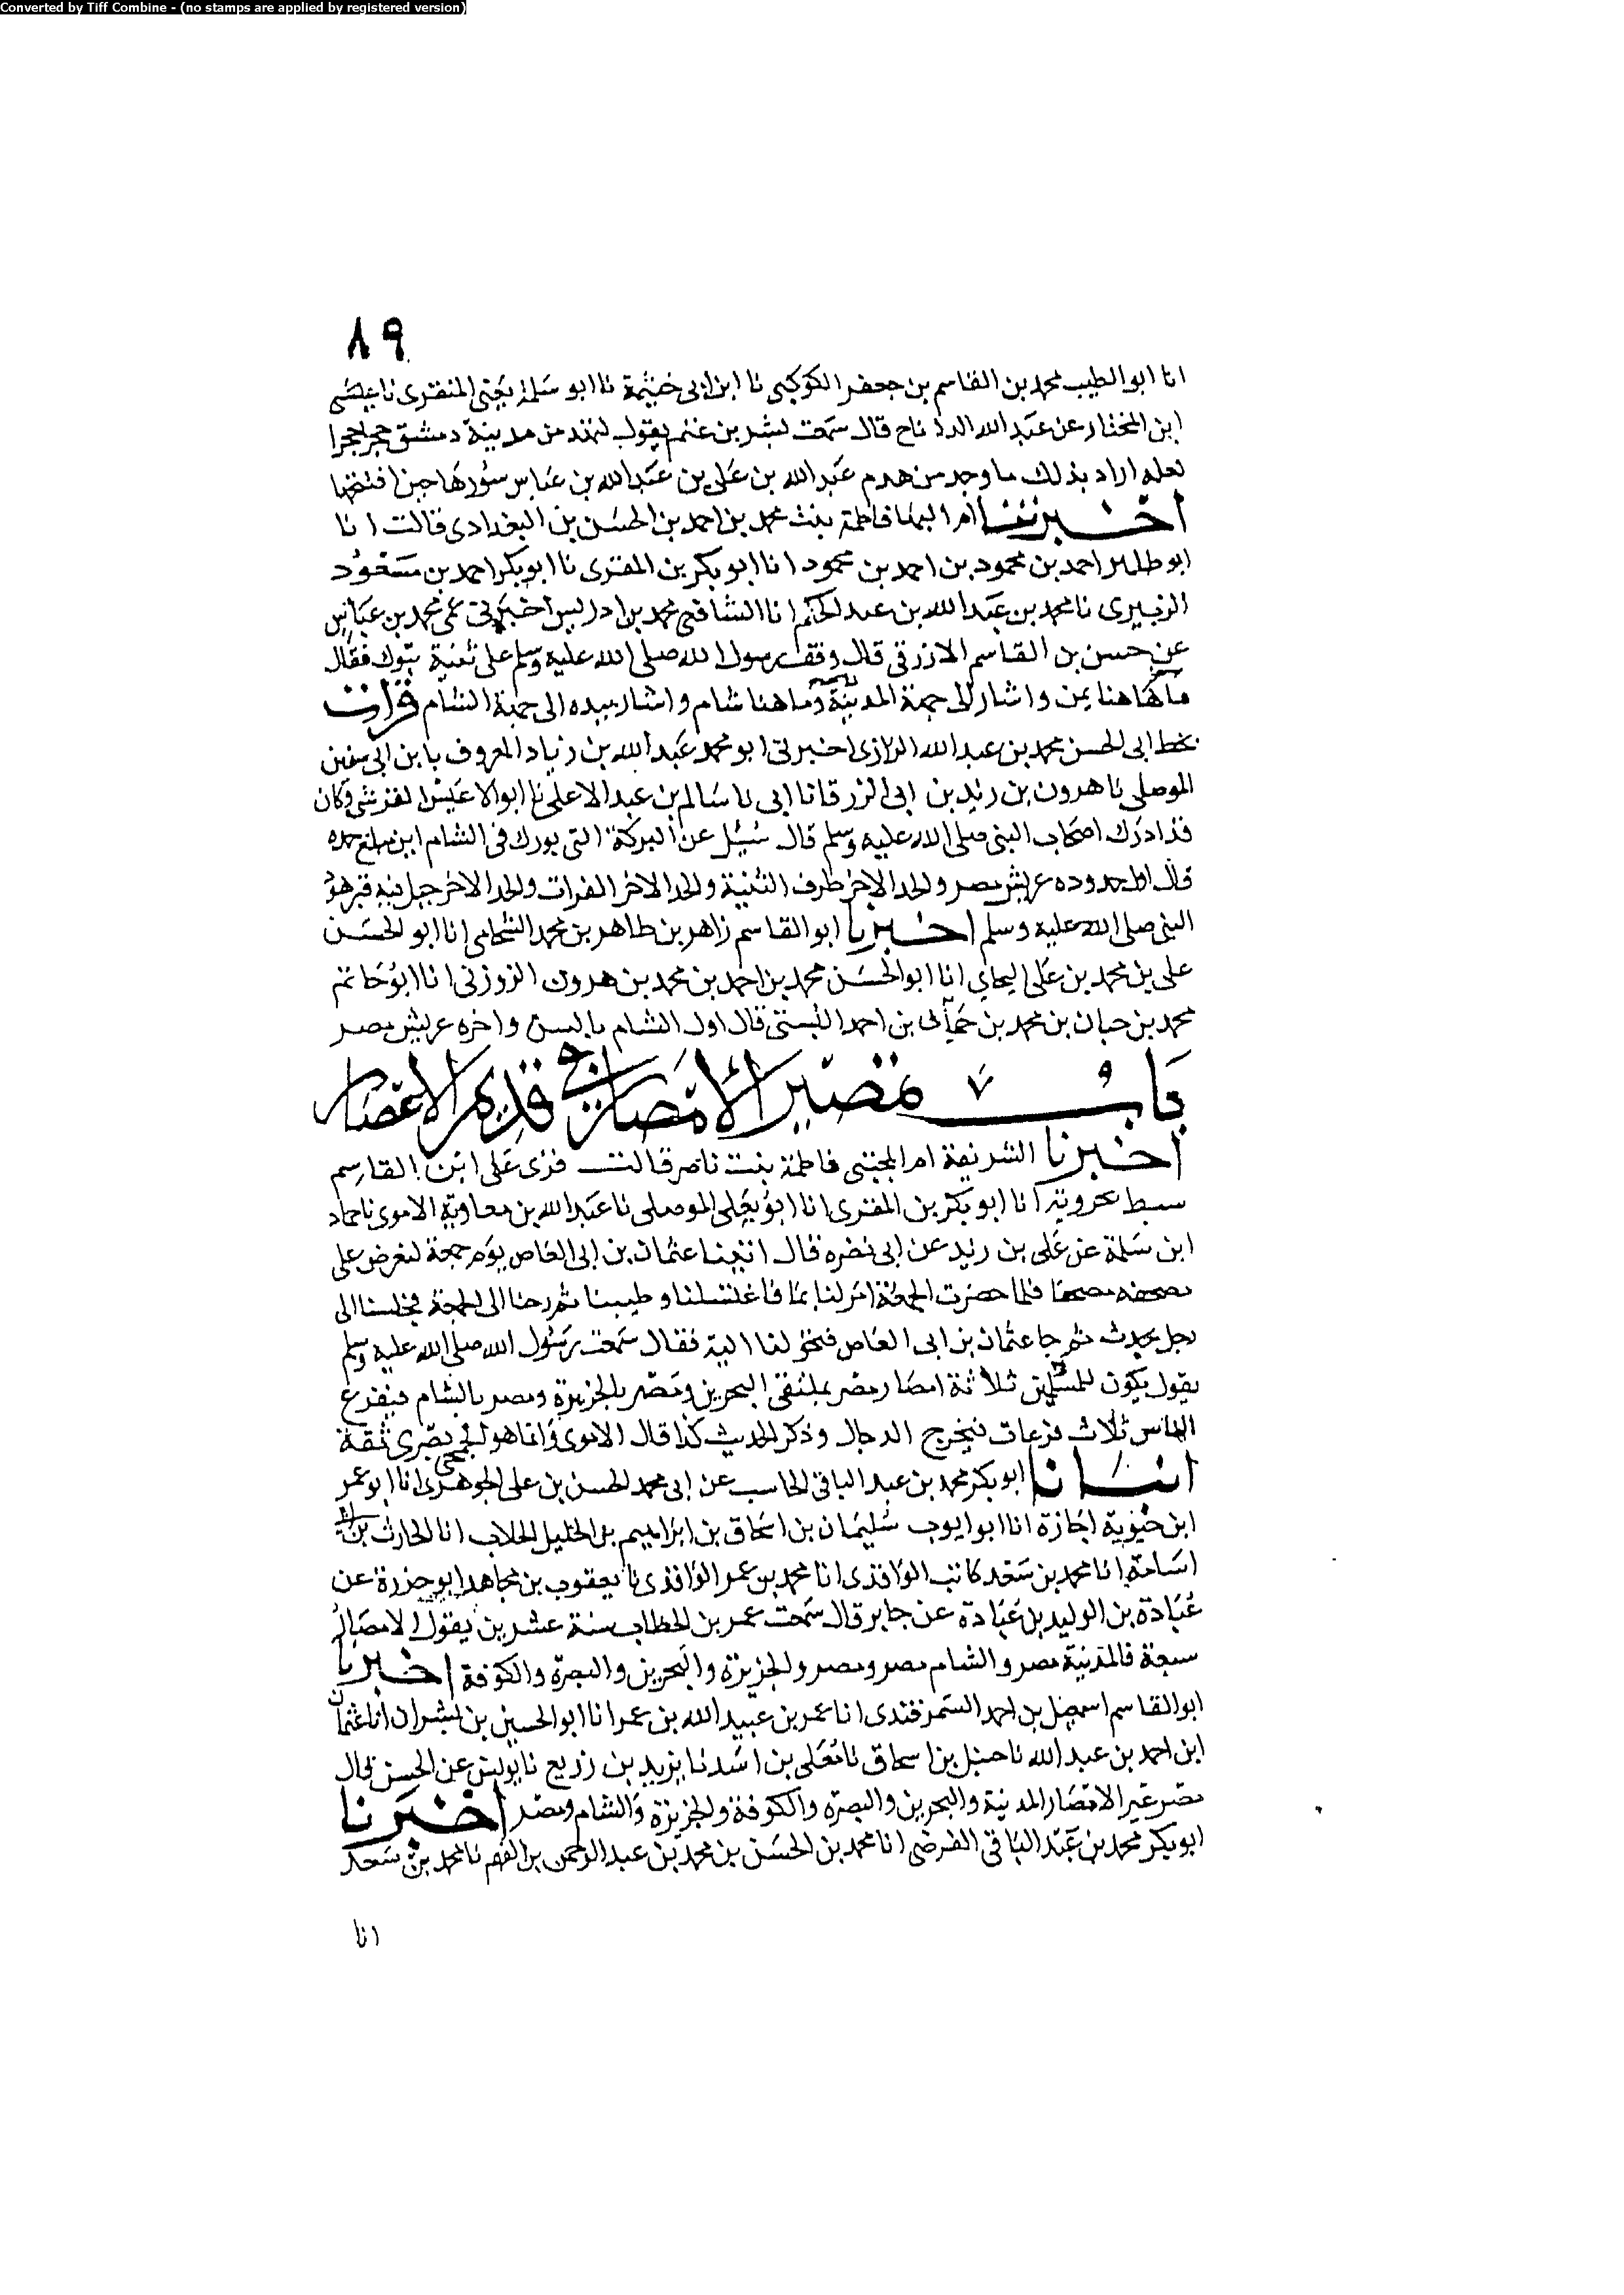 Converted by Tiff Combine - (no stamps are applied by registered version)
٨٩
انا ابو الطيب محمد بن القاسم بن جعفر الكوكبى نا ابن ابى خيثمة نا ابو سلمة يعنى المنقرى نا عيسى
ابن المختار عن عبد الله الداناح قال سمعت بشر بن غنم يقول لتهد من مدينة دمشق حجرا حجرا
لعله اراد بذلك ما وجد من هدم عبد الله بن على بن عبد الله بن عباس سورها حين افتتحها
اخبرتنا ام البها فاطمة بنت محمد بن احمد بن الحسن بن البغدادى قالت انا
ابو طاهر احمد بن محمود بن احمد بن محمود انا ابو بكر بن المقرى نا ابو بكر احمد بن مسعود
الزبيرى نا محمد بن عبد الله بن عبد الحكم انا الشافعى محمد بن ادريس اخبرنى عمى محمد بن عباس
عن حسن بن القاسم الازرقى قال وقف رسول الله صلى الله عليه وسلم على ثنية تبوك فقال
ما هاهنا يمن واشار الى جهة المدينة وما هنا شام واشار بيده الى جهة الشام قرات
بخط ابى الحسن محمد بن عبد الله الرازى اخبرنى ابو محمد عبد الله بن زياد المعروف بابن ابى سفين
الموصلى نا هرون بن زيد بن ابى الزرقا نا ابى نا سالم بن عبد الاعلى نا ابو الاعيس القرشى وكان
قد ادرك اصحاب النبى صلى الله عليه وسلم قال سئل عن البركة التى بورك فى الشام اين مبلغ حده
قال اول حدوده عريش مصر والحد الاخر طرف الثنية والحد الاخر الفرات والحد الاخر جبل فيه قبر هود
النبى صلى الله عليه وسلم اخبرنا ابو القاسم زاهر بن طاهر بن محمد الشحامى انا ابو الحسن
على بن محمد بن على البحاثى انا ابو الحسن محمد بن احمد بن محمد بن هرون الزوزنى انا ابو حاتم
محمد بن حبان بن محمد بن احمد البستى قال اول الشام بالس واخره عريش مصر
باب تمصير الامصار فى قديم الاعصار
اخبرنا الشريفة ام المجتبى فاطمة بنت ناصر قالت قرى على ابن القاسم
سبط بحرويه انا ابو بكر بن المقرى انا ابو يعلى الموصلى نا عبد الله بن معاوية الاموى نا حماد
ابن سلمة عن على بن زيد عن ابى نضره قال اتينا عثمان بن ابى العاص يوم جمعة لنعرض على
مصحفه مصحفا فلما حضرت الجمعة امر لنا بما فاغتسلنا وطيبنا ثم رحنا الى الجمعة فجلسنا الى
رجل يحدث ثم جا عثمان بن ابى العاص فتحولنا اليه فقال سمعت رسول الله صلى الله عليه وسلم
يقول يكون للمسلمين ثلاثة امصار مصر بملتقى البحرين ومصر بالجزيرة ومصر بالشام فيفزع
الناس ثلاث فزعات فيخرج الدجال وذكر الحديث كذا قال الاموى وانما هو الجمحى بصرى ثقة
انبانا ابو بكر محمد بن عبد الباقى الحاسب عن ابى محمد الحسن بن على الجوهرى انا ابو عمر
ابن حيوية اجازة انا ابو ايوب سليمان بن اسحاق بن ابراهيم بن الخليل الجلاب انا الحارث بن ابى
اسامة انا محمد بن سعد كاتب الواقدى انا محمد بن عمر الواقدى نا يعقوب بن مجاهد ابو حزرة عن
عبادة بن الوليد بن عبادة عن جابر قال سمعت عمر بن الخطاب سنة عشرين يقول الامصار
سبعة فالمدينة مصر والشام مصر ومصر والجزيرة والبحرين والبصرة والكوفة اخبرنا
ابو القاسم اسمعيل بن احمد السمرقندى انا عمر بن عبيد الله بن عمر انا ابو الحسين بن بشران انا عثمان
ابن احمد بن عبد الله نا حنبل بن اسحاق نا معلى بن اسد نا يزيد بن زريع نا يونس عن الحسن قال
مصر عمر الامصار المدينة والبحرين والبصرة والكوفة والجزيرة والشام ومصر اخبرنا
ابو بكر محمد بن عبد الباقى الفرضى انا محمد بن الحسن بن محمد بن عبد الرحمن بن الفهم نا محمد بن سعد
انا